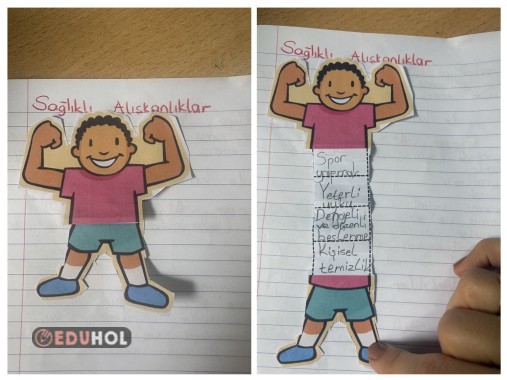 Sağlıklı Alışkanlıklar
EDUHOL
Sağlıklı Alışkanlıklar
Spor
yapmak
Yeterli
uyku
Dengeli
ve düzenli
beslenme
Kişisel
temizlik